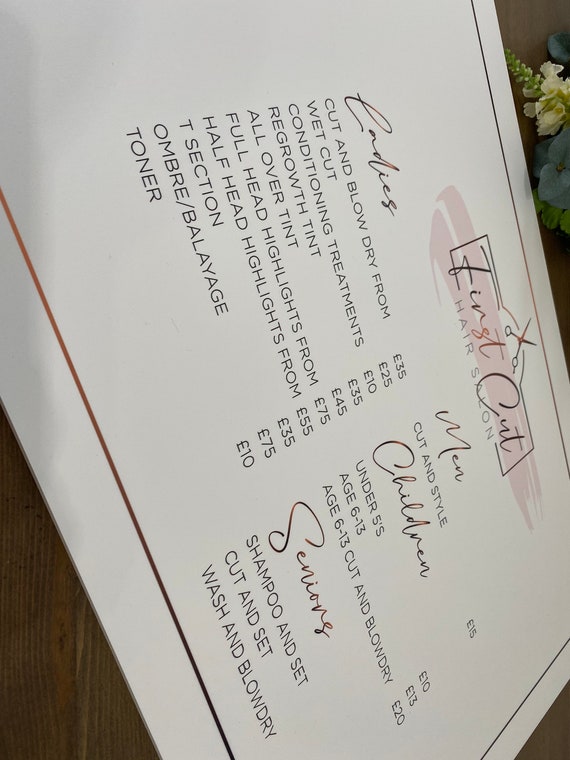 First Cut
HAIR SALON
Ladies
CUT AND BLOW DRY FROM £35
WET CUT £25
CONDITIONING TREATMENTS £10
REGROWTH TINT £35
ALL OVER TINT £45
FULL HEAD HIGHLIGHTS FROM £75
HALF HEAD HIGHLIGHTS FROM £55
T SECTION £35
OMBRE/BALAYAGE £75
TONER £10
Men
CUT AND STYLE £15
Children
UNDER 5'S £10
AGE 6-13 £13
AGE 6-13 CUT AND BLOWDRY £20
Seniors
SHAMPOO AND SET
CUT AND SET
WASH AND BLOWDRY